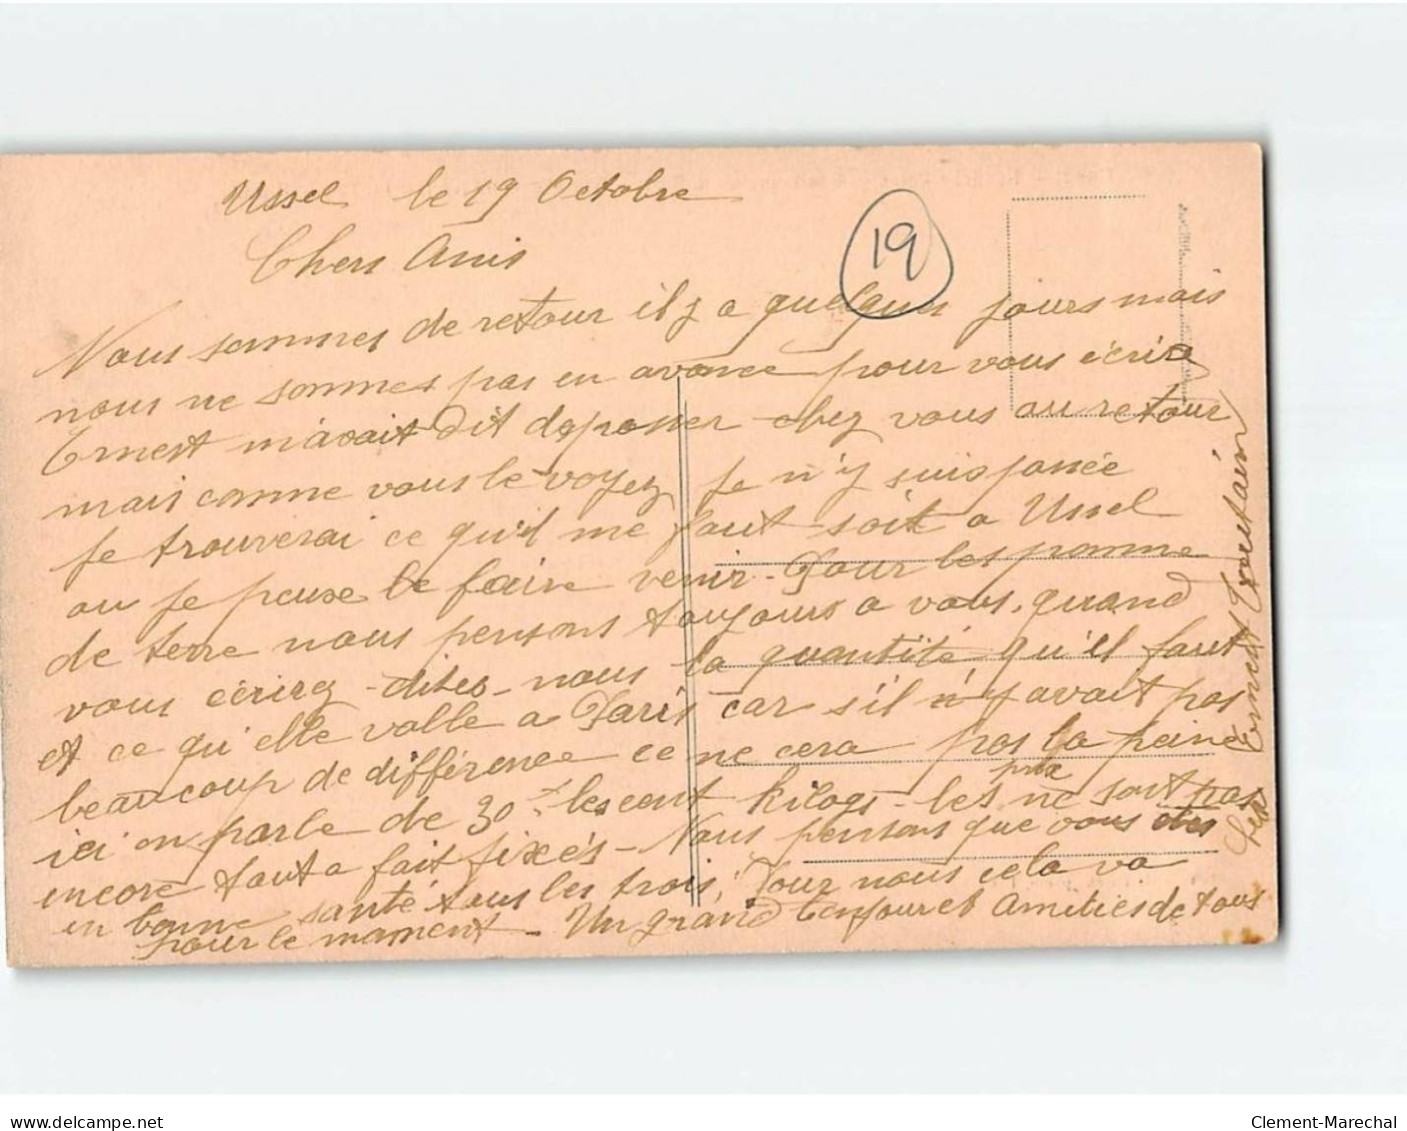 Ussel le 19 Octobre
19
Chers Amis
Nous sommes de retour il y a quelques jours mais
nous ne sommes pas en avance pour vous écrire
Ernest m'avait dit de passer chez vous au retour
mais comme vous le voyez je n'y suis passée
je trouverai ce qu'il me faut soit a Ussel
ou je peuse le faire venir - Pour les pomme
de terre nous pensons toujours a vous, quand
vous écrirez - dites - nous la quantité qu'il faut
et ce qu'elle valle a Paris car s'il n'y avait pas
beaucoup de différence ce ne cera pas la peine
ici on parle de 30f les cent kilogs - les prix ne sont pas
encore tout a fait fixés - Nous pensons que vous êtes
en bonne santé tous les trois, Pour nous cela va
pour le moment - Un grand bonjour et Amitiés de tous
Ernest
Clement-Marechal
www.delcampe.net